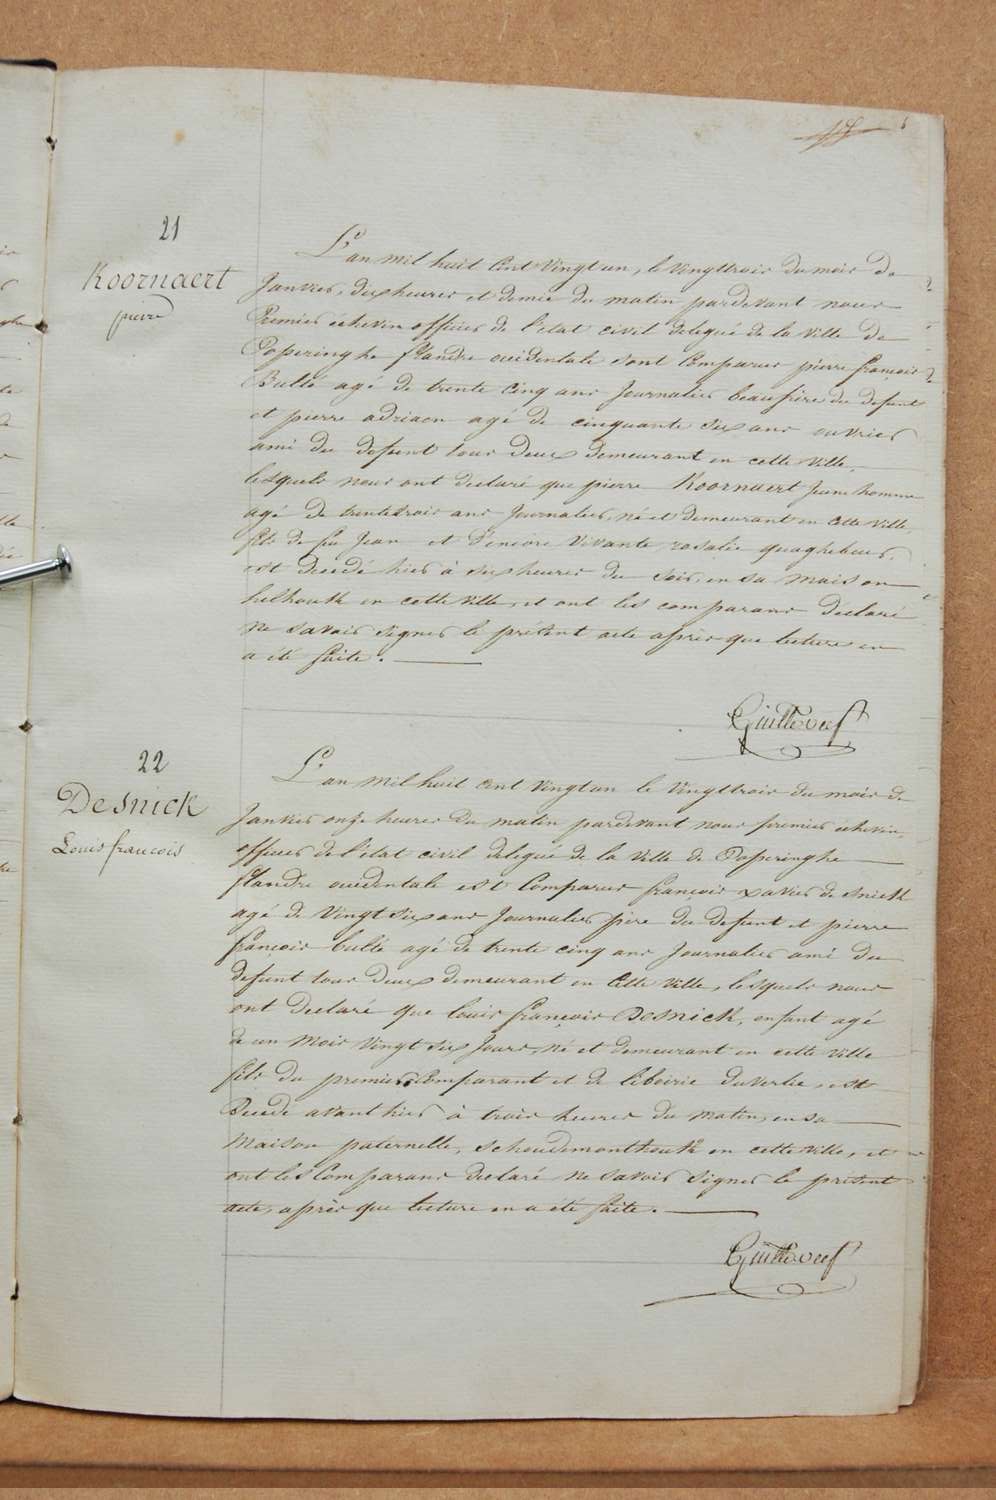 21
Koornaert
pierre
L'an mil huit Cent vingt un, le vingttrois du mois de
Janvier, dix heures et demie du matin pardevant nous
Premier échevin officier de l'état civil delegué de la ville de
Poperinghe flandre occidentale sont Comparus pierre françois
Bulté agé de trente Cinq ans Journalier beaufrère du defunt
et pierre adriaen agé de cinquante six ans ouvrier
ami du defunt tous deux demeurant en cette ville,
lesquels nous ont declaré que pierre Koornaert Jeunehomme
agé de trentetrois ans Journalier, né et demeurant en cette ville,
fils de feu Jean et d'encore vivante rosalie quaghebeur,
est decedé hier à six heures du soir, en sa maison
helhouk en cette ville, et ont les comparans declaré
ne savoir signer le présent acte après que lecture en
a été faite.
22
Desnick
Louis francois
L'an mil huit cent vingtun le vingttrois du mois de
Janvier onze heures du matin pardevant nous premier échevin,
officier de l'état civil delegué de la ville de Poperinghe
flandre occidentale est Comparus françois xavier desnick
agé de vingt six ans Journalier père du defunt et pierre
françois bulté agé de trente cinq ans Journalier ami du
defunt tous deux demeurant en Cette ville, lesquels nous
ont declaré que louis françois Desnick, enfant agé
d'un mois vingt six Jours, né et demeurant en cette ville
fils du premier Comparant et de liboirie duverlie, est
Decedé avant hier à trois heures du matin, en sa
maison paternelle, schoudemonthouk en cette ville, et
ont les Comparans declaré ne savoir signer le présent
acte, après que lecture en a été faite.